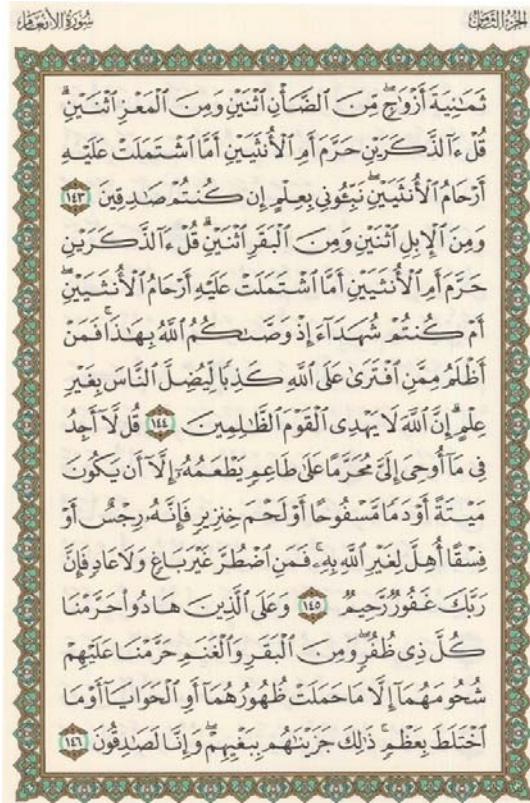 سُورَةُ الأَنْعَامِ
الجُزْءُ الثَّامِنُ
ثَمَٰنِيَةَ أَزْوَٰجٍۖ مِّنَ ٱلضَّأْنِ ٱثْنَيْنِ وَمِنَ ٱلْمَعْزِ ٱثْنَيْنِۗ
قُلْ ءَآلذَّكَرَيْنِ حَرَّمَ أَمِ ٱلْأُنثَيَيْنِ أَمَّا ٱشْتَمَلَتْ عَلَيْهِ
أَرْحَامُ ٱلْأُنثَيَيْنِۖ نَبِّـُٔونِي بِعِلْمٍ إِن كُنتُمْ صَٰدِقِينَ ١٤٣
وَمِنَ ٱلْإِبِلِ ٱثْنَيْنِ وَمِنَ ٱلْبَقَرِ ٱثْنَيْنِۗ قُلْ ءَآلذَّكَرَيْنِ
حَرَّمَ أَمِ ٱلْأُنثَيَيْنِ أَمَّا ٱشْتَمَلَتْ عَلَيْهِ أَرْحَامُ ٱلْأُنثَيَيْنِۖ
أَمْ كُنتُمْ شُهَدَآءَ إِذْ وَصَّىٰكُمُ ٱللَّهُ بِهَٰذَاۚ فَمَنْ
أَظْلَمُ مِمَّنِ ٱفْتَرَىٰ عَلَى ٱللَّهِ كَذِبًا لِّيُضِلَّ ٱلنَّاسَ بِغَيْرِ
عِلْمٍۗ إِنَّ ٱللَّهَ لَا يَهْدِى ٱلْقَوْمَ ٱلظَّٰلِمِينَ ١٤٤ قُل لَّآ أَجِدُ
فِى مَآ أُوحِىَ إِلَىَّ مُحَرَّمًا عَلَىٰ طَاعِمٍ يَطْعَمُهُۥٓ إِلَّآ أَن يَكُونَ
مَيْتَةً أَوْ دَمًا مَّسْفُوحًا أَوْ لَحْمَ خِنزِيرٍ فَإِنَّهُۥ رِجْسٌ أَوْ
فِسْقًا أُهِلَّ لِغَيْرِ ٱللَّهِ بِهِۦۚ فَمَنِ ٱضْطُرَّ غَيْرَ بَاغٍ وَلَا عَادٍ فَإِنَّ
رَبَّكَ غَفُورٌ رَّحِيمٌ ١٤٥ وَعَلَى ٱلَّذِينَ هَادُوا۟ حَرَّمْنَا
كُلَّ ذِى ظُفُرٍۖ وَمِنَ ٱلْبَقَرِ وَٱلْغَنَمِ حَرَّمْنَا عَلَيْهِمْ
شُحُومَهُمَآ إِلَّا مَا حَمَلَتْ ظُهُورُهُمَآ أَوِ ٱلْحَوَايَآ أَوْ مَا
ٱخْتَلَطَ بِعَظْمٍۚ ذَٰلِكَ جَزَيْنَٰهُم بِبَغْيِهِمْۖ وَإِنَّا لَصَٰدِقُونَ ١٤٦